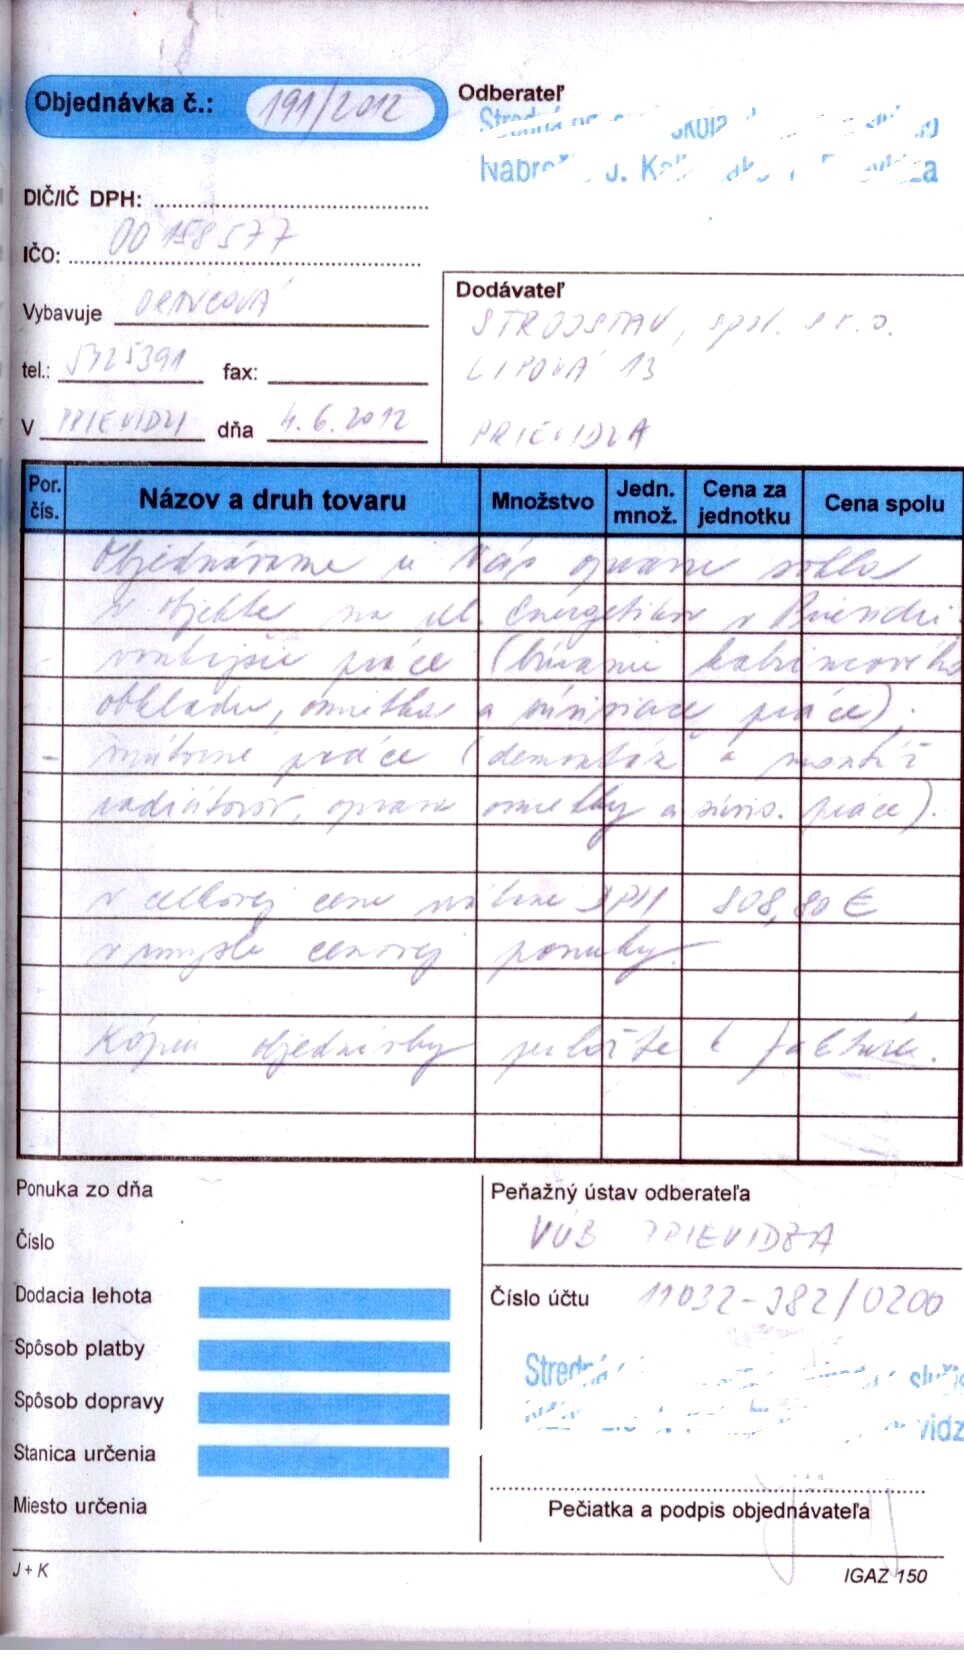 Objednávka č.: 191/2012
Odberateľ
J.
DIČ/IČ DPH:
IČO: 00158577
Vybavuje
tel.: 5425391 fax:
V PRIEVIDZI dňa 4.6.2012
Dodávateľ
STROJSTAV, spol. s r.o.
LIPOVÁ 13
PRIEVIDZA
Por. čís. Názov a druh tovaru Množstvo Jedn. množ. Cena za jednotku Cena spolu
Objednávame u Vás opravu sokla
v objekte na ul. Energetikov v Prievidzi.
- vonkajšie práce (búranie kabrincového
obkladu, omietka a súvisiace práce),
- vnútorné práce (demontáž a montáž
radiátorov, oprava omietky a súvis. práce).
v celkovej cene DPH 808,80 €
v zmysle cenovej ponuky.
Kópiu objednávky priložte k faktúre.
Ponuka zo dňa
Číslo
Dodacia lehota
Spôsob platby
Spôsob dopravy
Stanica určenia
Miesto určenia
Peňažný ústav odberateľa
VÚB PRIEVIDZA
Číslo účtu 11032-382/0200
Stredná
Pečiatka a podpis objednávateľa
J + K
IGAZ 150